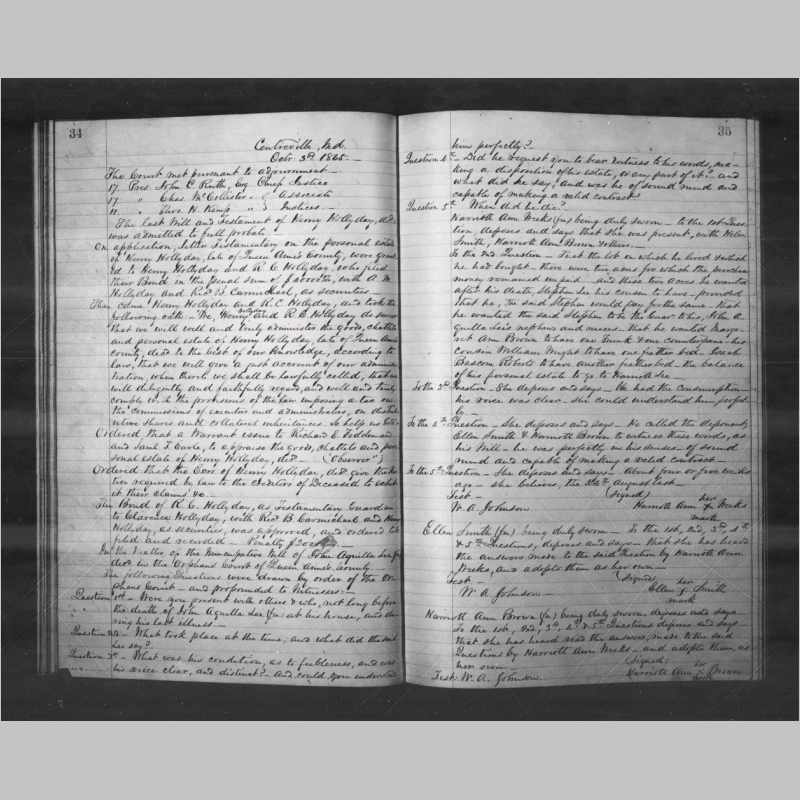 34
Centreville, Md.
Octr. 3d. 1865.
The Court met pursuant to adjournment
Pres. John C. Ruth, Esq Chief Justice
" Chas. McCollister } Associate
" Thos. H. Kemp " } Justices
The last Will and Testament of Henry Hollyday, decd.
was admitted to full probate.
On application, letter Testamentary on the personal estate
of Henry Hollyday, late of Queen Ann's County, were grant
ed to Henry Hollyday and R. C. Hollyday, who filed
their Bond in the penal sum of with A. M.
Hollyday and Revd. B. Carmichael, as securities.
Then came Henry Hollyday and R. C. Hollyday, and took the
following oath - We, Henry Hollyday and R. C. Hollyday do swear
that we will well and truly administer the goods, chattels
and personal estate of Henry Hollyday, late of Queen Anns
county, decd. to the best of our knowledge, according to
law, that we will give a just account of our adminis
tration, when thereto we shall be lawfully called, that we
will diligently and faithfully regard, and well and truly
comply with the provisions of the law imposing a tax on
the commissions of executors and administrators, on distrib
utive shares and collateral inheritances. So help us God
Ordered that a Warrant issue to Richard E. Feddeman
and Saml. T. Earle, to appraise the goods, chattels and per
sonal estate of Henry Hollyday, decd. (Observer)
Ordered that the Exrs. of Henry Hollyday, decd. give the no
tice required by law to the Creditors of Deceased to exhib
it their claims &c.
The Bond of R. C. Hollyday, as Testamentary Guardian
to Clarence Hollyday, with Revd. B. Carmichael and Henry
Hollyday, as securities, was approved, and ordered to be
filed and recorded - Penalty
In the matter of the Nuncupative Will of John Aquilla Lee
decd. in the Orphans Court of Queen Ann's County
The following Questions were drawn by order of the Or
phans Court - and propounded to Witnesses:
Question 1st - Were you present with others & who, not long before
the death of John Aquilla Lee (fn) at his house, and du
ring his last illness
Question 2d - What took place at the time, and what did the said
Lee say?
Question 3d - What was his condition, as to feebleness, and was
his voice clear, and distinct? And could you understand
35
him perfectly?
Question 4th - Did he request you to bear witness to his words, ma-
king a disposition of his estate, or any part of it? and
what did he say, and was he of sound mind and
capable of making a valid contract
Question 5th - When did he die?
Harriott Ann Weeks (fn) being duly sworn - to the 1st Ques
tion, deposes and says that she was present, with Ellen
Smith, Harriott Ann Brown & others.
To the 2nd Question - That the lot on which he lived & which
he had bought - there were two acres for which the purchase
money remained unpaid - and these two acres he wanted
after his death, Stephen Lee his son to have - provided
that he, the said Stephen would pay for the same - that
he wanted the said Stephen to be the Guar. to his, John A
quilla Lee's nephews and nieces - that he wanted Marga
ret Ann Brown to have one Trunk & one counterpane - his
cousin William Wright to have one feather bed - Sarah
Bascom Roberts to have another feather bed - the balance
of his personal estate to go to Harriott Lee
To the 3d Question - She deposes and says - He had the consumption
his voice was clear - she could understand him perfect
ly -
To the 4th Question - She deposes and says - He called the deponent,
Ellen Smith & Harriott Brown to witness these words, as
his Will - he was perfectly in his senses - of sound
mind and capable of making a valid contract.
To the 5th Question - She deposes and says - About four or five weeks
ago - she believes, the 24th August last
Test - (Signed) her
W. A. Johnson Harriott Ann X Weeks
mark
Ellen Smith (fn) being duly sworn - To the 1st, 2nd, 3d, 4th
& 5th Questions, deposes and says - that she has heard
the answers made to the said Question by Harriott Ann
Weeks, and adopts them as her own
Test - (Signed) her
W. A. Johnson - Ellen X Smith
mark
Harriott Ann Brown (fn) being duly sworn, deposes and says -
To the 1st, 2nd, 3d, 4th & 5th Questions deposes and says -
that she has heard read the answers, made to the said
Questions by Harriott Ann Weeks - and adopts them, as
her own (Signed) her
Test: W. A. Johnson Harriott Ann X Brown
mark